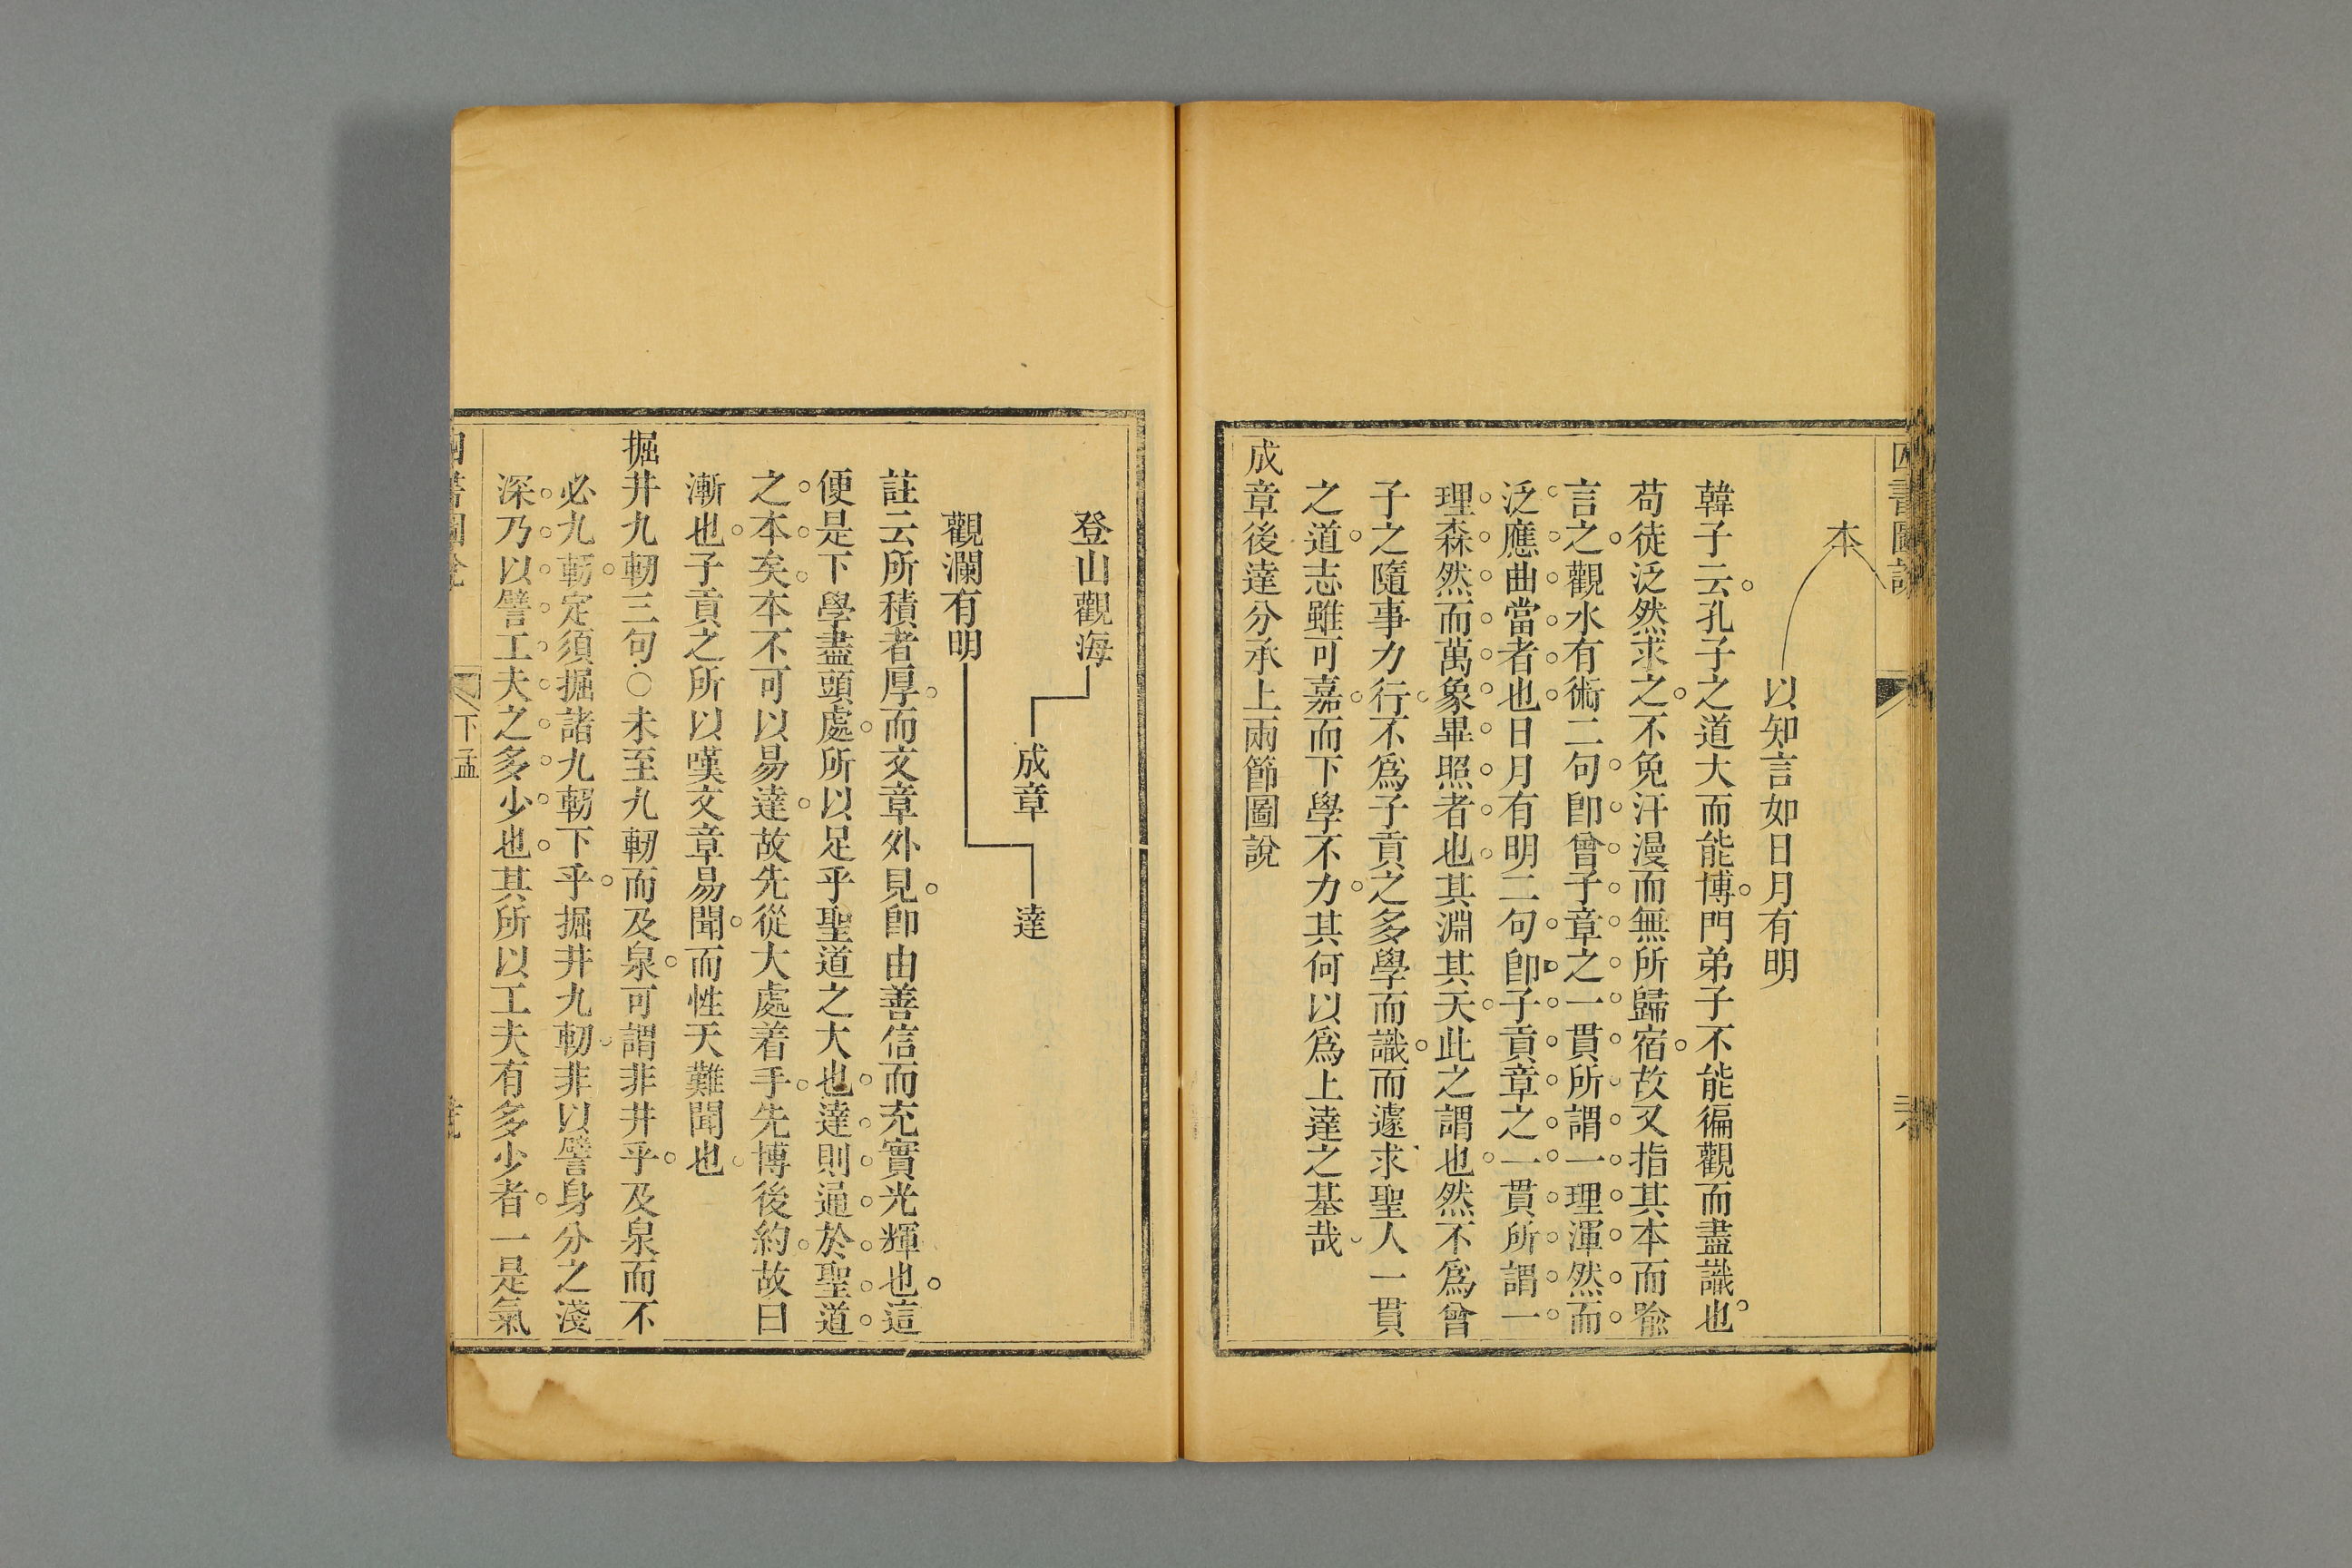 四書圖說
本
以知言如日月有明
韓子云孔子之道大而能博門弟子不能徧觀而盡識也
苟徒泛然求之不免汗漫而無所歸宿故又指其本而喩
言之觀水有術二句卽曾子章之一貫所謂一理渾然而
泛應曲當者也日月有明二句卽子貢章之一貫所謂一
理森然而萬象畢照者也其淵其天此之謂也然不爲曾
子之隨事力行不爲子貢之多學而識而遽求聖人一貫
之道志雖可嘉而下學不力其何以爲上達之基哉
成章後達分承上兩節圖說
登山觀海
成章
達
觀瀾有明
註云所積者厚而文章外見卽由善信而充實光輝也這
便是下學盡頭處所以足乎聖道之大也達則通於聖道
之本矣本不可以易達故先從大處着手先博後約故曰
漸也子貢之所以嘆文章易聞而性天難聞也
掘井九軔三句○未至九軔而及泉可謂非井乎及泉而不
必九軔定須掘諸九軔下乎掘井九軔非以譬身分之淺
深乃以譬工夫之多少也其所以工夫有多少者一是氣
四書圖說
下孟